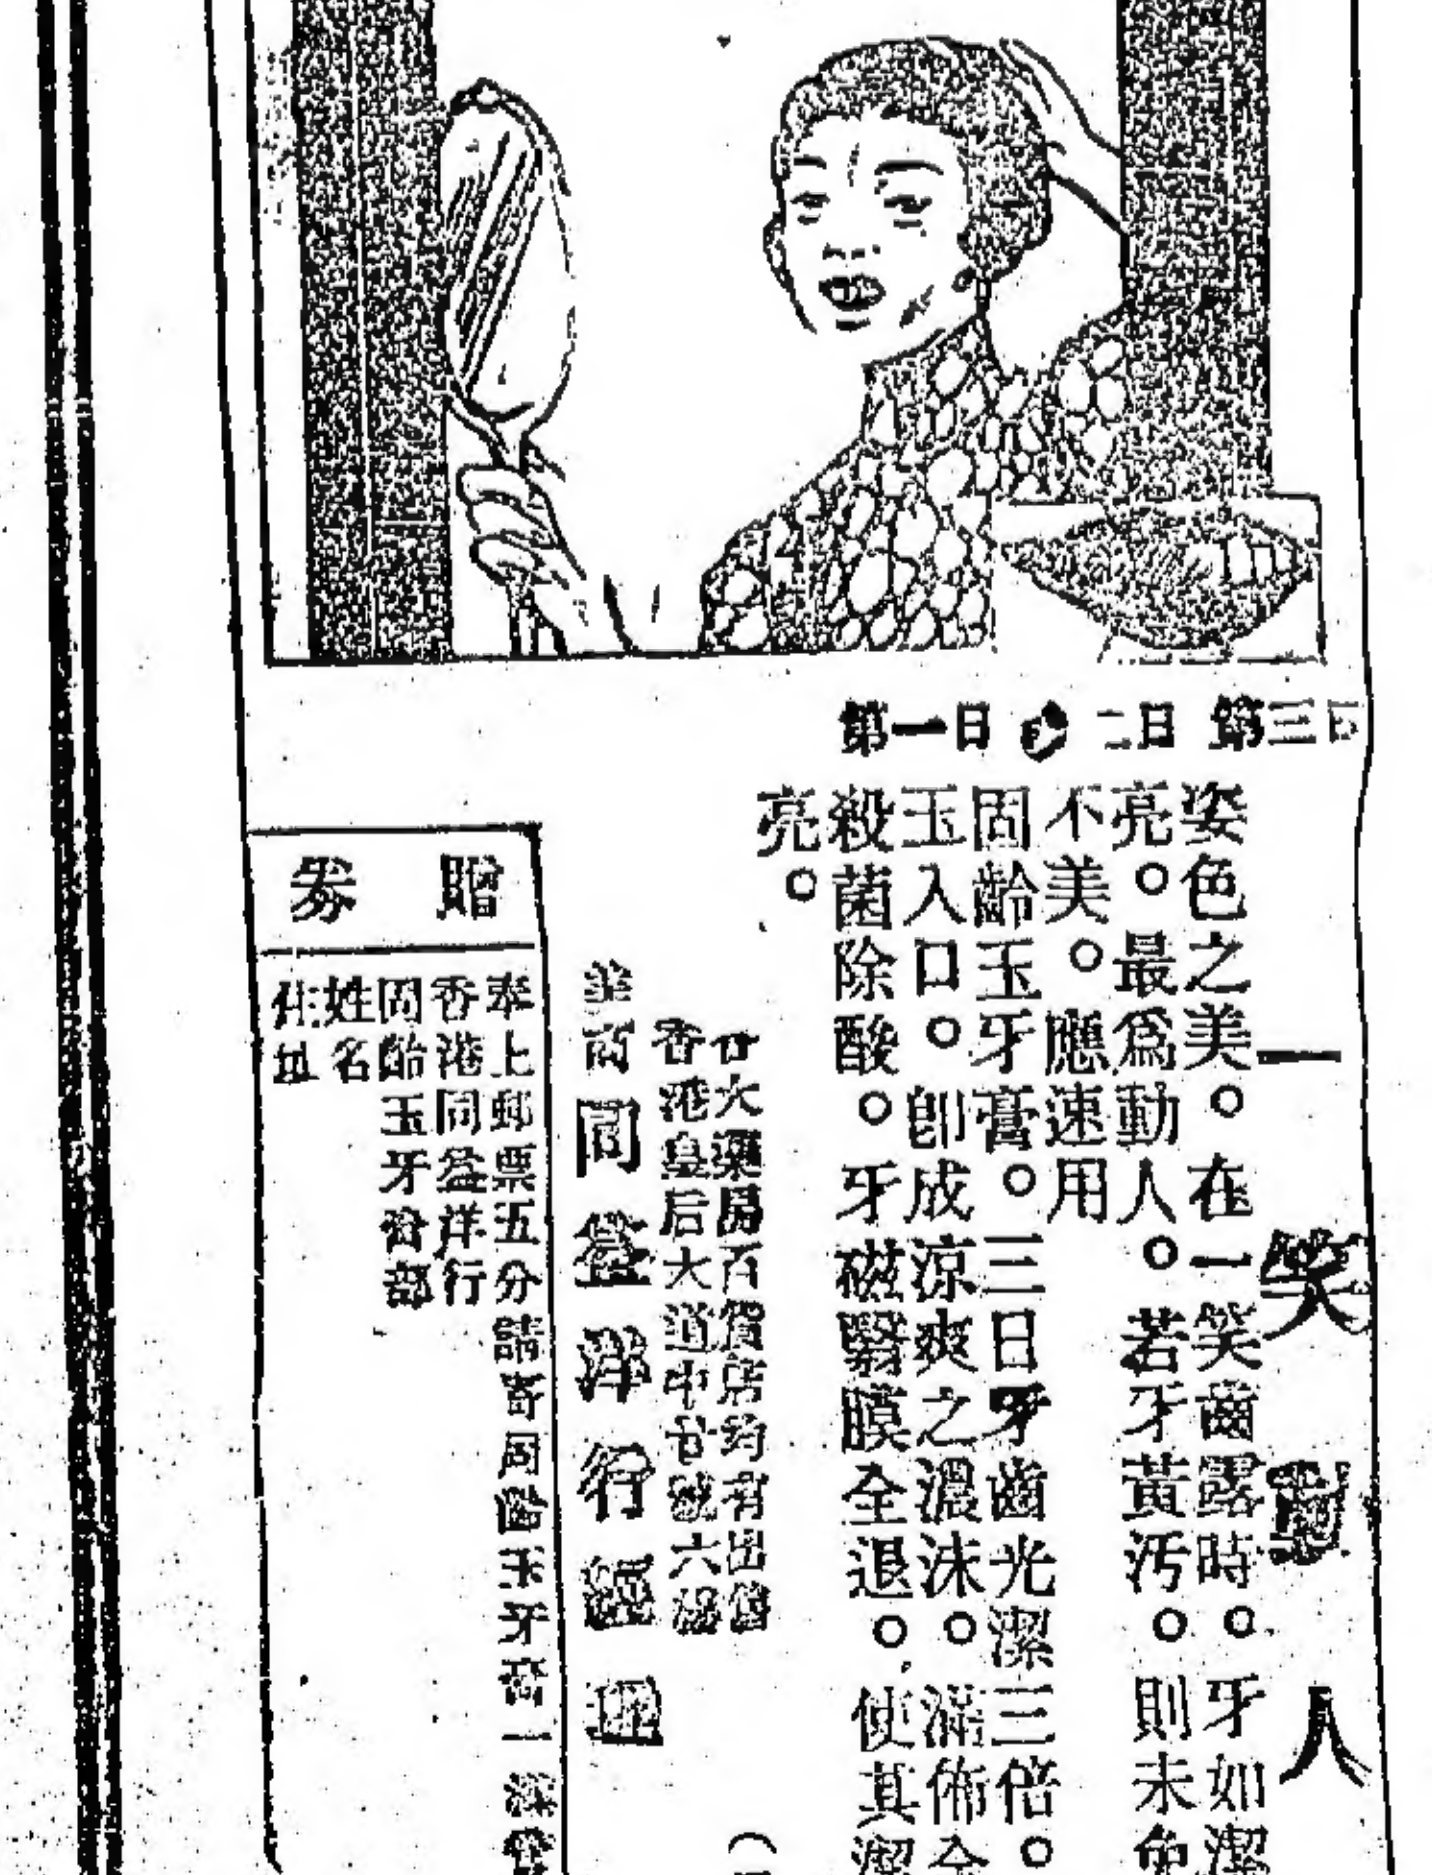 第一日 二日 第三日
一笑動人
姿色之美。在一笑齒露時。牙如潔
亮。最為動人。若牙黃污。則未免
不美。應速用
固齡玉牙膏。三日牙齒光潔三倍。
玉入口。卽成涼爽之濃沫。滿佈全
殺菌除酸。牙磁翳膜全退。使其潔
亮。
大藥房百貨店均有出售
香港皇后大道中 號六樓
美商同益洋行經理
贈券
奉上郵票五分請寄固齡玉牙膏一
香港同益洋行
固齡玉牙膏部
姓名
住址